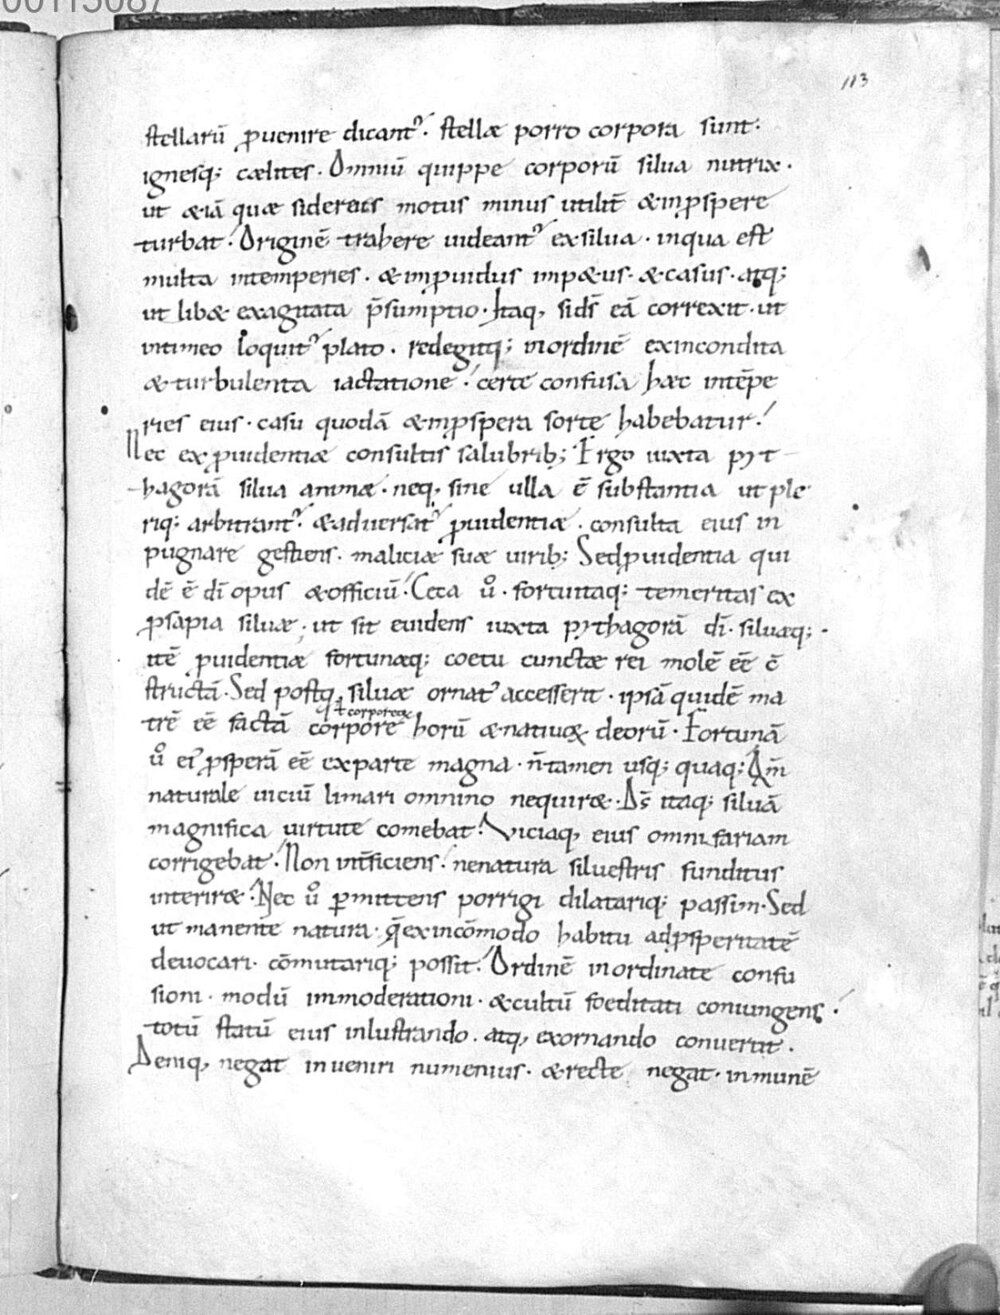 00115087
113
stellarū ꝓuenire dicantʾ. stellæ porro corpora sunt.
ignesq; cælites. Omniū quippe corporū silua nutrix.
ut &iā quæ sidereus motus minus utilit̄ & inꝓspere
turbat. Originē trahere uideantʾ ex silua. in qua est
multa intemperies. & inꝓuidus impetus. & casus. atq;
ut lib& exagitata p̄sumptio. Itaq, si ds̄ eā correxit. ut
in timeo loquitʾ plato. redegitq; in ordinē ex incondita
& turbulenta iactatione. certe confusa hæc intēpe
ries eius. casu quodā & inꝓspera sorte habebatur.
Nec ex ꝓuidentiæ consultis salubrib; Ergo iuxta pyt
hagorā silua animæ. neq, sine ulla ē substantia ut ple
riq; arbitrantʾ. & aduersatʾ ꝓuidentiæ. consulta eius in
pugnare gestiens. maliciæ suæ uirib; Sed ꝓuidentia qui
dē ē dī opus & officiū. Ceca ů. fortuitaq; temeritas ex
ꝓsapia siluæ. ut sit euidens iuxta pythagorā dī. siluæq;.
itē ꝓuidentiæ fortunæq; coetu cunctæ rei molē eē cō
structā. Sed postq̄ siluæ ornatʾ accesserit. ipsā quidē ma
ł corporeoꝝ
trē eē factā corpore horū & natiuoꝝ deorū. Fortunā
ů eiʾ ꝓsperā eē ex parte magna. n̄ tamen usq; quaq; Qm̄
naturale uiciū limari omnino nequir&. Ds̄ itaq; siluā
magnifica uirtute comebat. Viciaq, eius omnifariam
corrigebat. Non int̄ficiens. ne natura siluestris funditus
interir&. Nec ů ꝑmittens porrigi dilatariq; passim. Sed
ut manente natura. q̄ ex incōmodo habitu ad ꝓsperitatē
deuocari. cōmutariq; possit. Ordinē inordinate confu
sioni. modū immoderationi. & cultū foeditati coniungens.
totū statū eius inlustrando. atq, exornando conuertit.
Deniq, negat inueniri numenius. & recte negat. inmunē